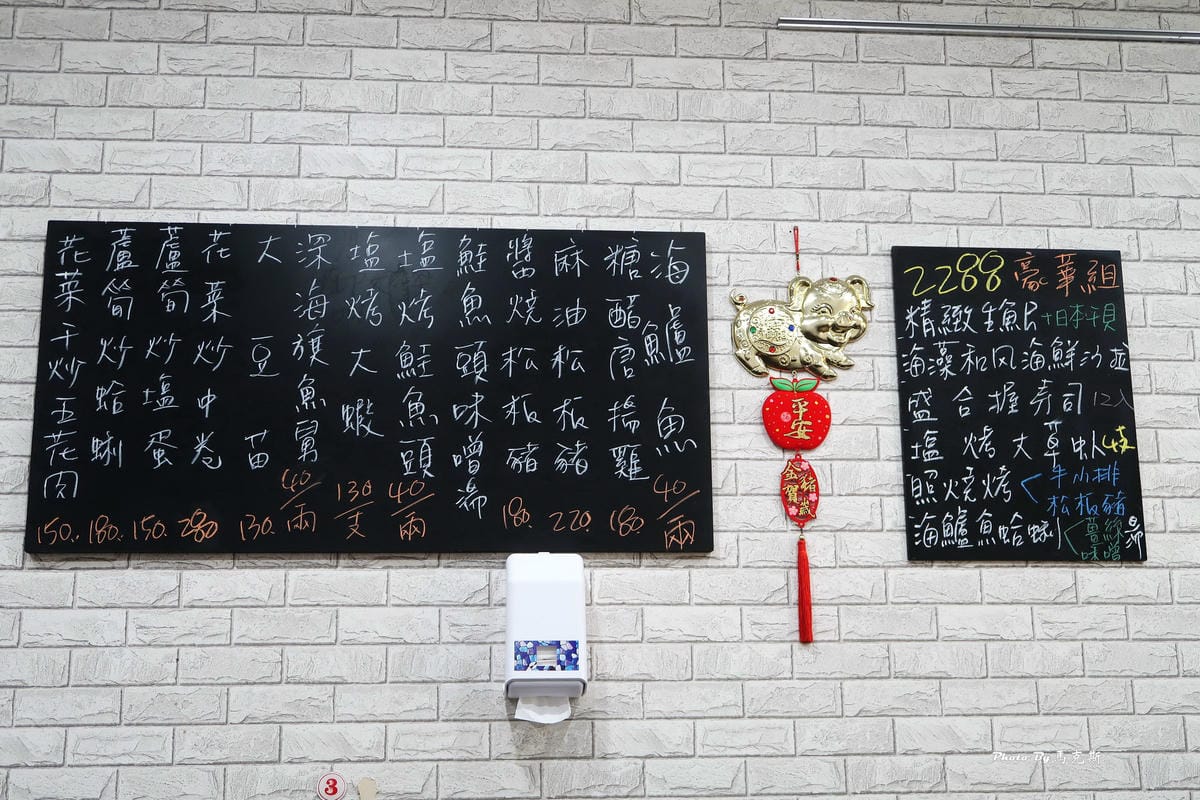 海鱸魚 40/兩
糖醋唐揚雞 180.
麻油松板豬 220.
醬燒松板豬 180.
鮭魚頭味噌湯
塩烤鮭魚頭 40/兩
塩烤大蝦 130/支
深海旗魚舅 40/兩
大豆苗 130.
花菜炒中卷 280
蘆筍炒塩蛋 150.
蘆筍炒蛤蜊 180.
花菜干炒五花肉 150.
平安
金豬賀歲
2288 豪華組
精緻生魚片+日本干貝
海藻和风海鮮沙拉
盛合握寿司 12入
塩烤大草虾4支
照燒烤<牛小排
松板豬
海鱸魚蛤蜊<薑絲湯
味噌
3
Photo By 馬克斯